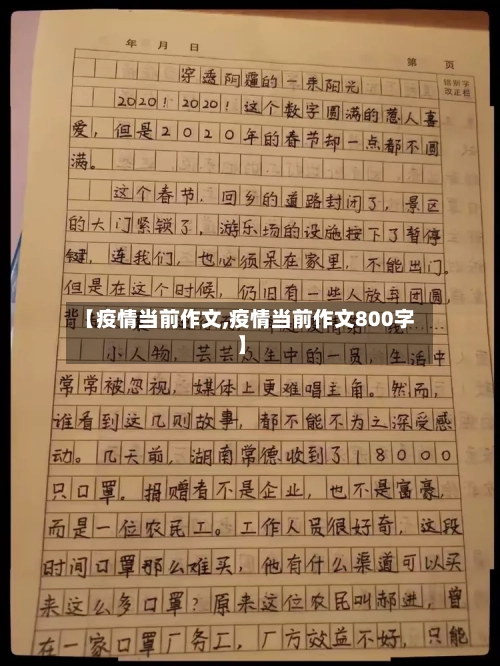 年 月 日
第 页
错别字
改正栏
穿透阴霾的一束阳光
2020！2020！这个数字圆满的惹人喜
爱，但是2020年的春节却一点都不圆
满。
这个春节，回乡的道路封闭了，景区
的大门紧锁了，游乐场的设施按下了暂停
键，连我们，也必须呆在家里，不能出门。
但是在这个时候，仍旧有一些人放弃团圆，
背
【疫情当前作文,疫情当前作文800字
】
小人物，芸芸众生中的一员，生活中
常常被忽视，媒体上更难唱主角。然而，
谁看到这几则故事，都不能不为之深受感
动。几天前，湖南常德收到了18000
只口罩。捐赠者不是企业，也不是富豪，
而是一位农民工。工作人员很好奇，这段
时间口罩那么难买，他有什么渠道可以买
来这么多口罩？原来这位农民叫郝进，曾
在一家口罩厂务工，厂方效益不好，只能